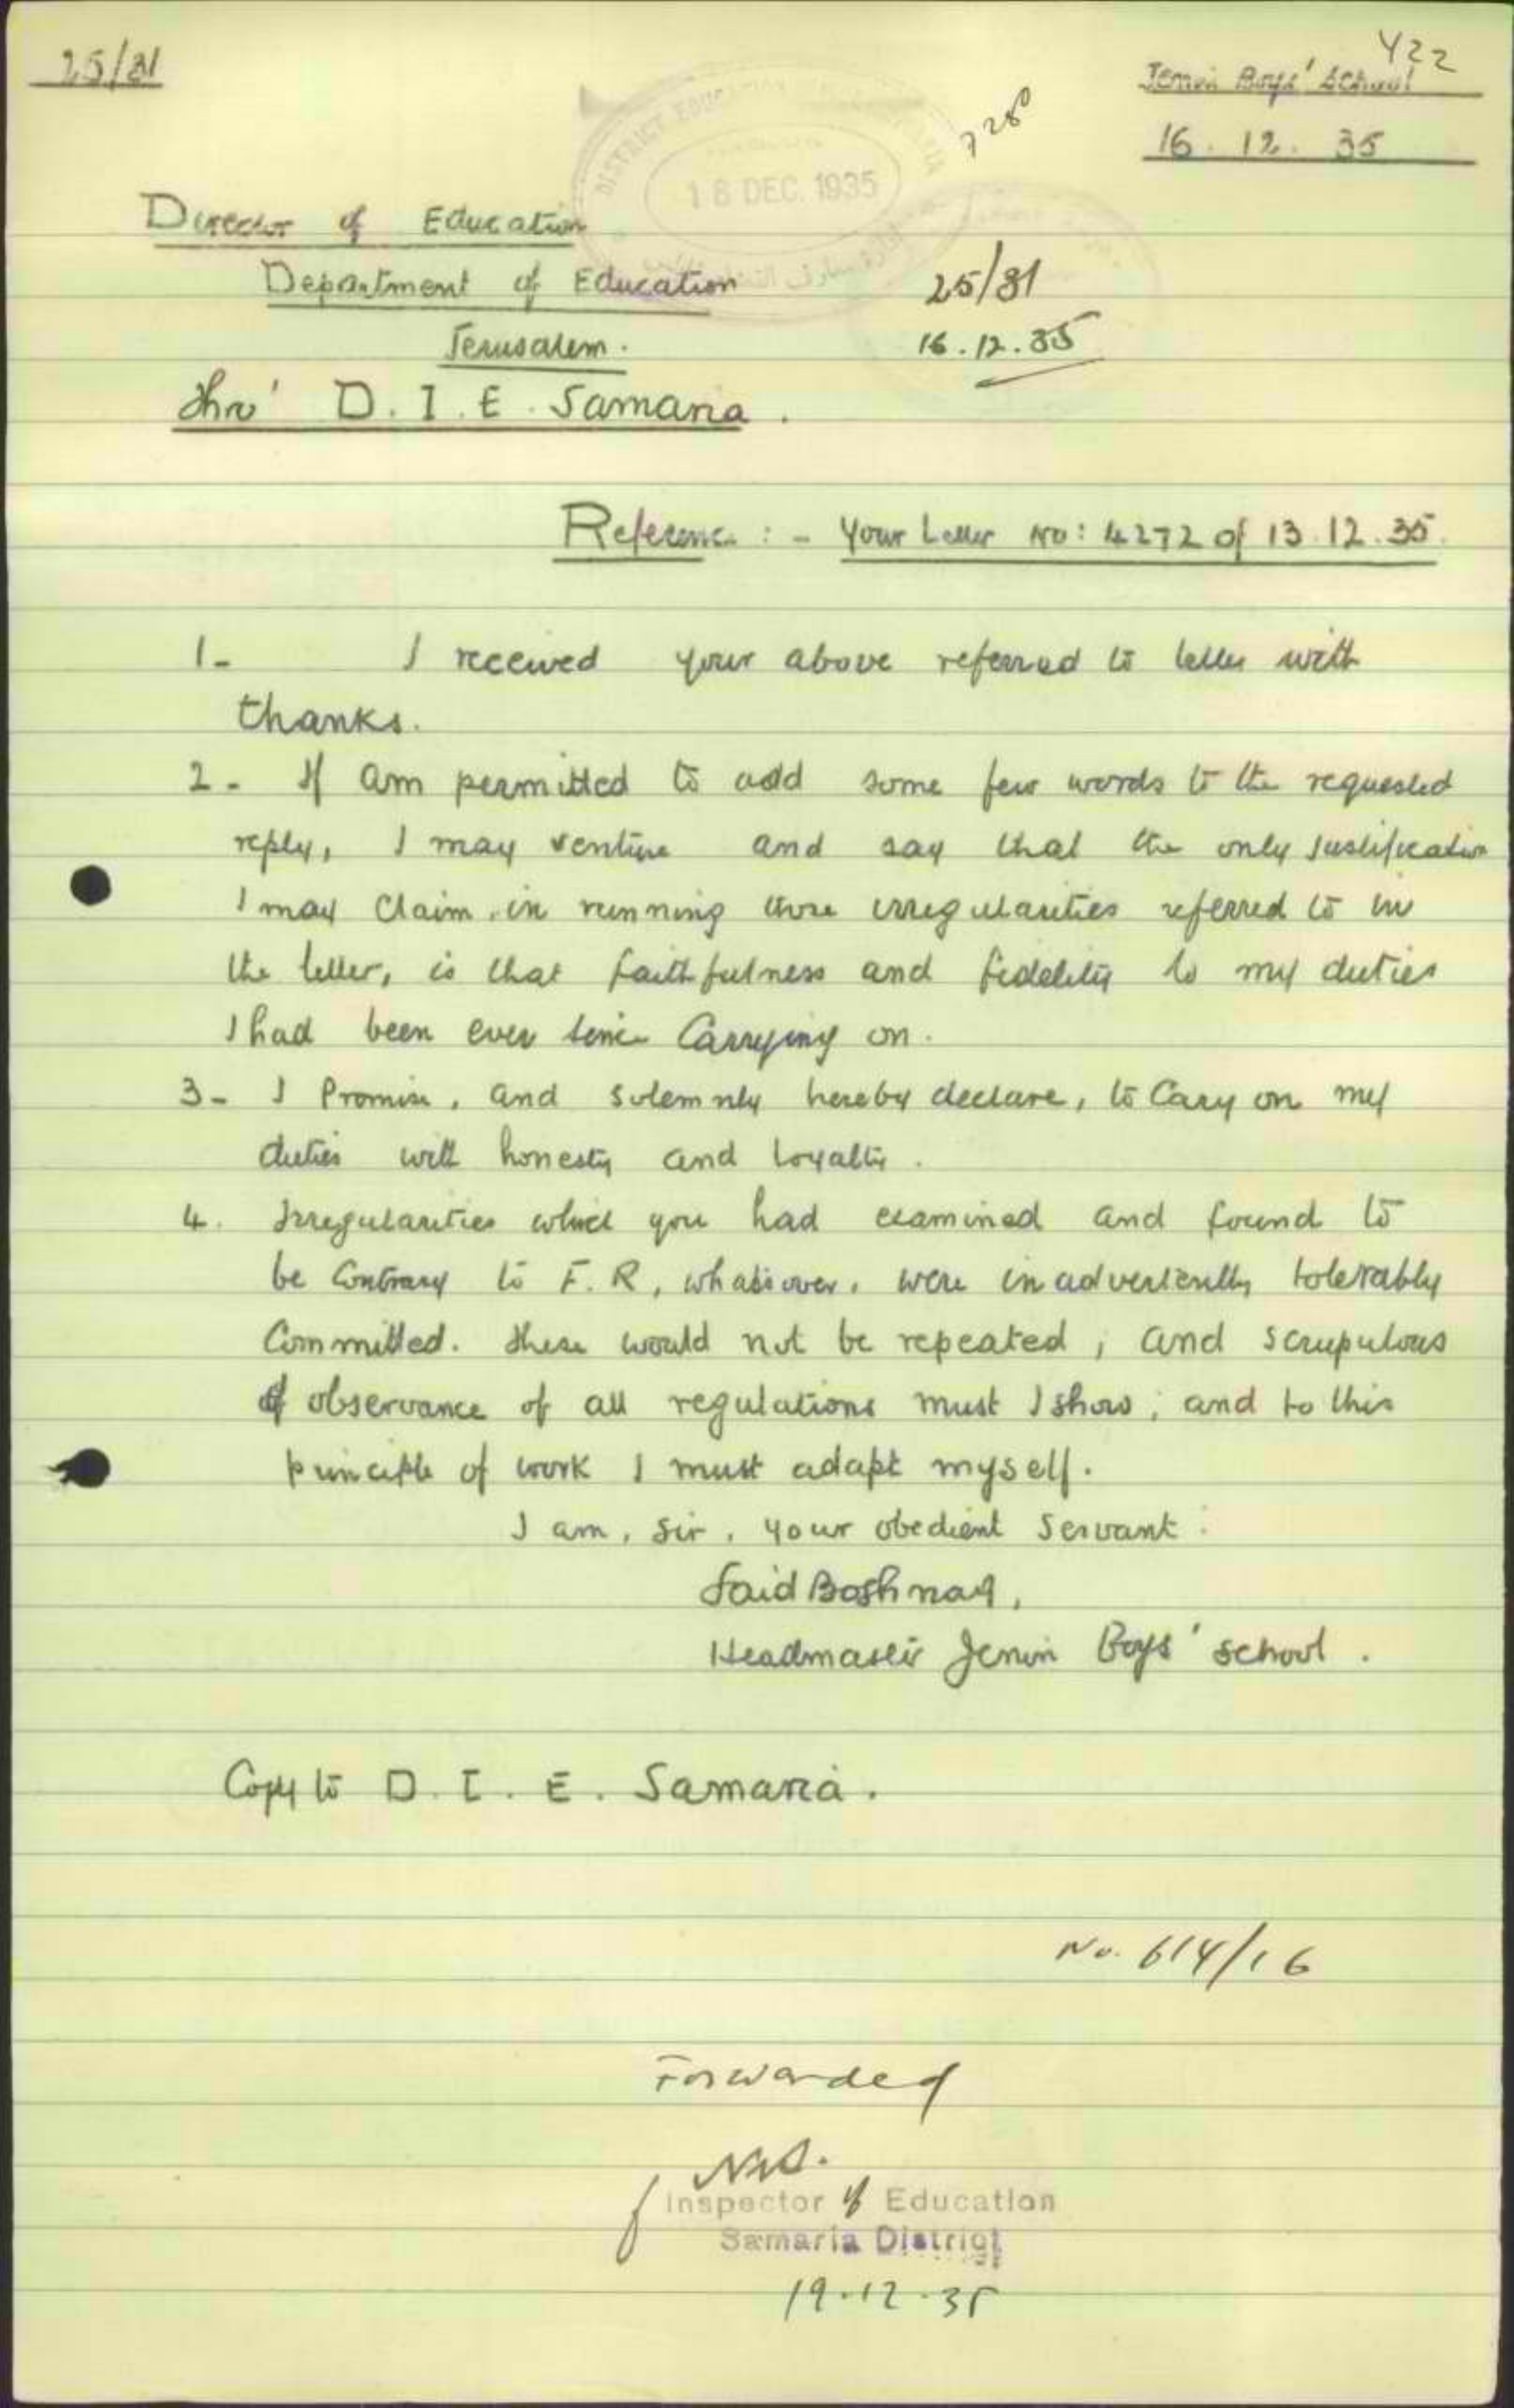 25/31
422
Jenin Boys' School
16. 12. 35
7280
DISTRICT EDUCATION
18 DEC. 1935
Director of Education
Department of Education
Jerusalem.
25/31
16.12.35
thro' D.I.E. Samaria.
Reference :- Your Letter No: 4272 of 13.12.35.
1- I received your above referred to letter with
thanks.
2- If am permitted to add some few words to the requested
reply, I may venture and say that the only justification
I may claim, in running those irregularities referred to in
the letter, is that faithfulness and fidelity to my duties
I had been ever since carrying on.
3- I Promise, and solemnly hereby declare, to Cary on my
duties with honesty and loyalty.
4. Irregularities which you had examined and found to
be Contrary to F.R, whatsover, were inadvertently tolerably
Committed. These would not be repeated, and scrupulous
observance of all regulations must I show; and to this
principle of work I must adapt myself.
I am, Sir, your obedient Servant:
Said Boshnaq,
Headmaster Jenin Boys' school.
Copy to D.I.E. Samaria.
No. 614/16
Forwarded
Inspector of Education
Samaria District
19.12.35